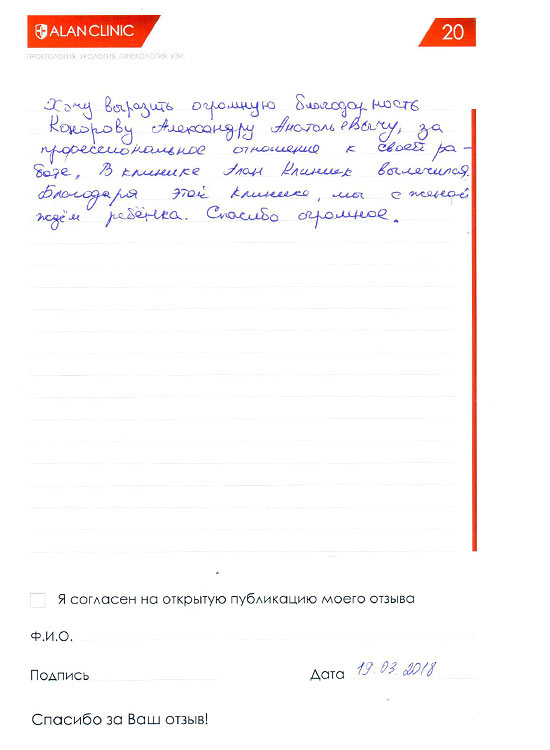 ALAN CLINIC
20
ПРОКТОЛОГИЯ. УРОЛОГИЯ. ГИНЕКОЛОГИЯ. УЗИ.
Хочу выразить огромную благодарность
Кокорову Александру Анатольевичу, за
профессиональное отношение к своей ра-
боте, В клинике Алан Клиник вылечился.
Благодаря этой клинике, мы с женой
ждём ребёнка. Спасибо огромное.
Я согласен на открытую публикацию моего отзыва
Ф.И.О.
Подпись Дата 19.03.2018
Спасибо за Ваш отзыв!